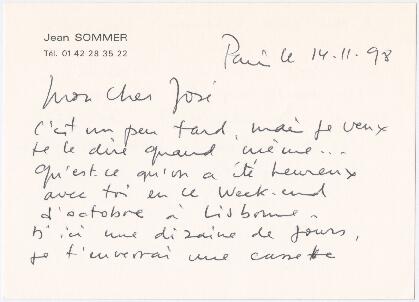 Jean SOMMER
Tél. 01 42 28 35 22
Paris le 14-11-98
Mon Cher José
C'est un peu tard, mais je veux
te le dire quand même...
Qu'est-ce qu'on a été heureux
avec toi en ce Week-end
d'octobre à Lisbonne.
D'ici une dizaine de jours,
je t'enverrai une cassette